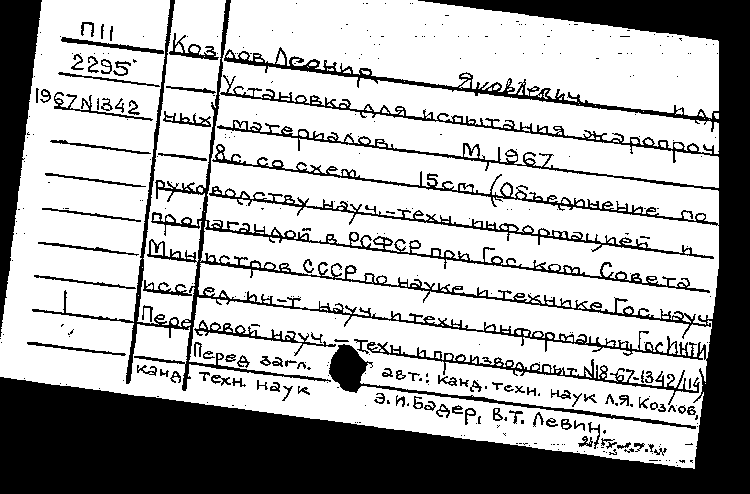 П11
2295
1967 N1342
Козлов, Леонид Яковлевич. и др
Установка для испытания жаропроч
ных материалов. М, 1967.
8с. со схем. 15см. (Объединение по
руководству науч.-техн. информацией и
пропагандой в РСФСР при Гос. ком. Совета
Министров СССР по науке и технике. Гос. науч.
исслед. ин-т. науч. и техн. информации ГосИНТИ
Передовой науч.-техн. и производ. опыт. N18-67-1342/114)
1
Перед загл. авт.: канд. техн. наук Л.Я. Козлов,
канд. техн. наук Э.И. Бадер, В.Т. Левин.